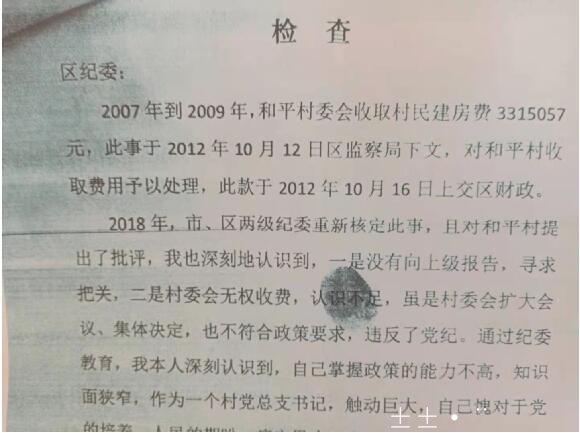 检 查
区纪委：
2007 年到 2009 年，和平村委会收取村民建房费 3315057
元，此事于 2012 年 10 月 12 日区监察局下文，对和平村收
取费用予以处理，此款于 2012 年 10 月 16 日上交区财政。
2018 年，市、区两级纪委重新核定此事，且对和平村提
出了批评，我也深刻地认识到，一是没有向上级报告，寻求
把关，二是村委会无权收费，认识不足，虽是村委会扩大会
议、集体决定，也不符合政策要求，违反了党纪。通过纪委
教育，我本人深刻认识到，自己掌握政策的能力不高，知识
面狭窄，作为一个村党总支书记，触动巨大，自己愧对于党
的培养